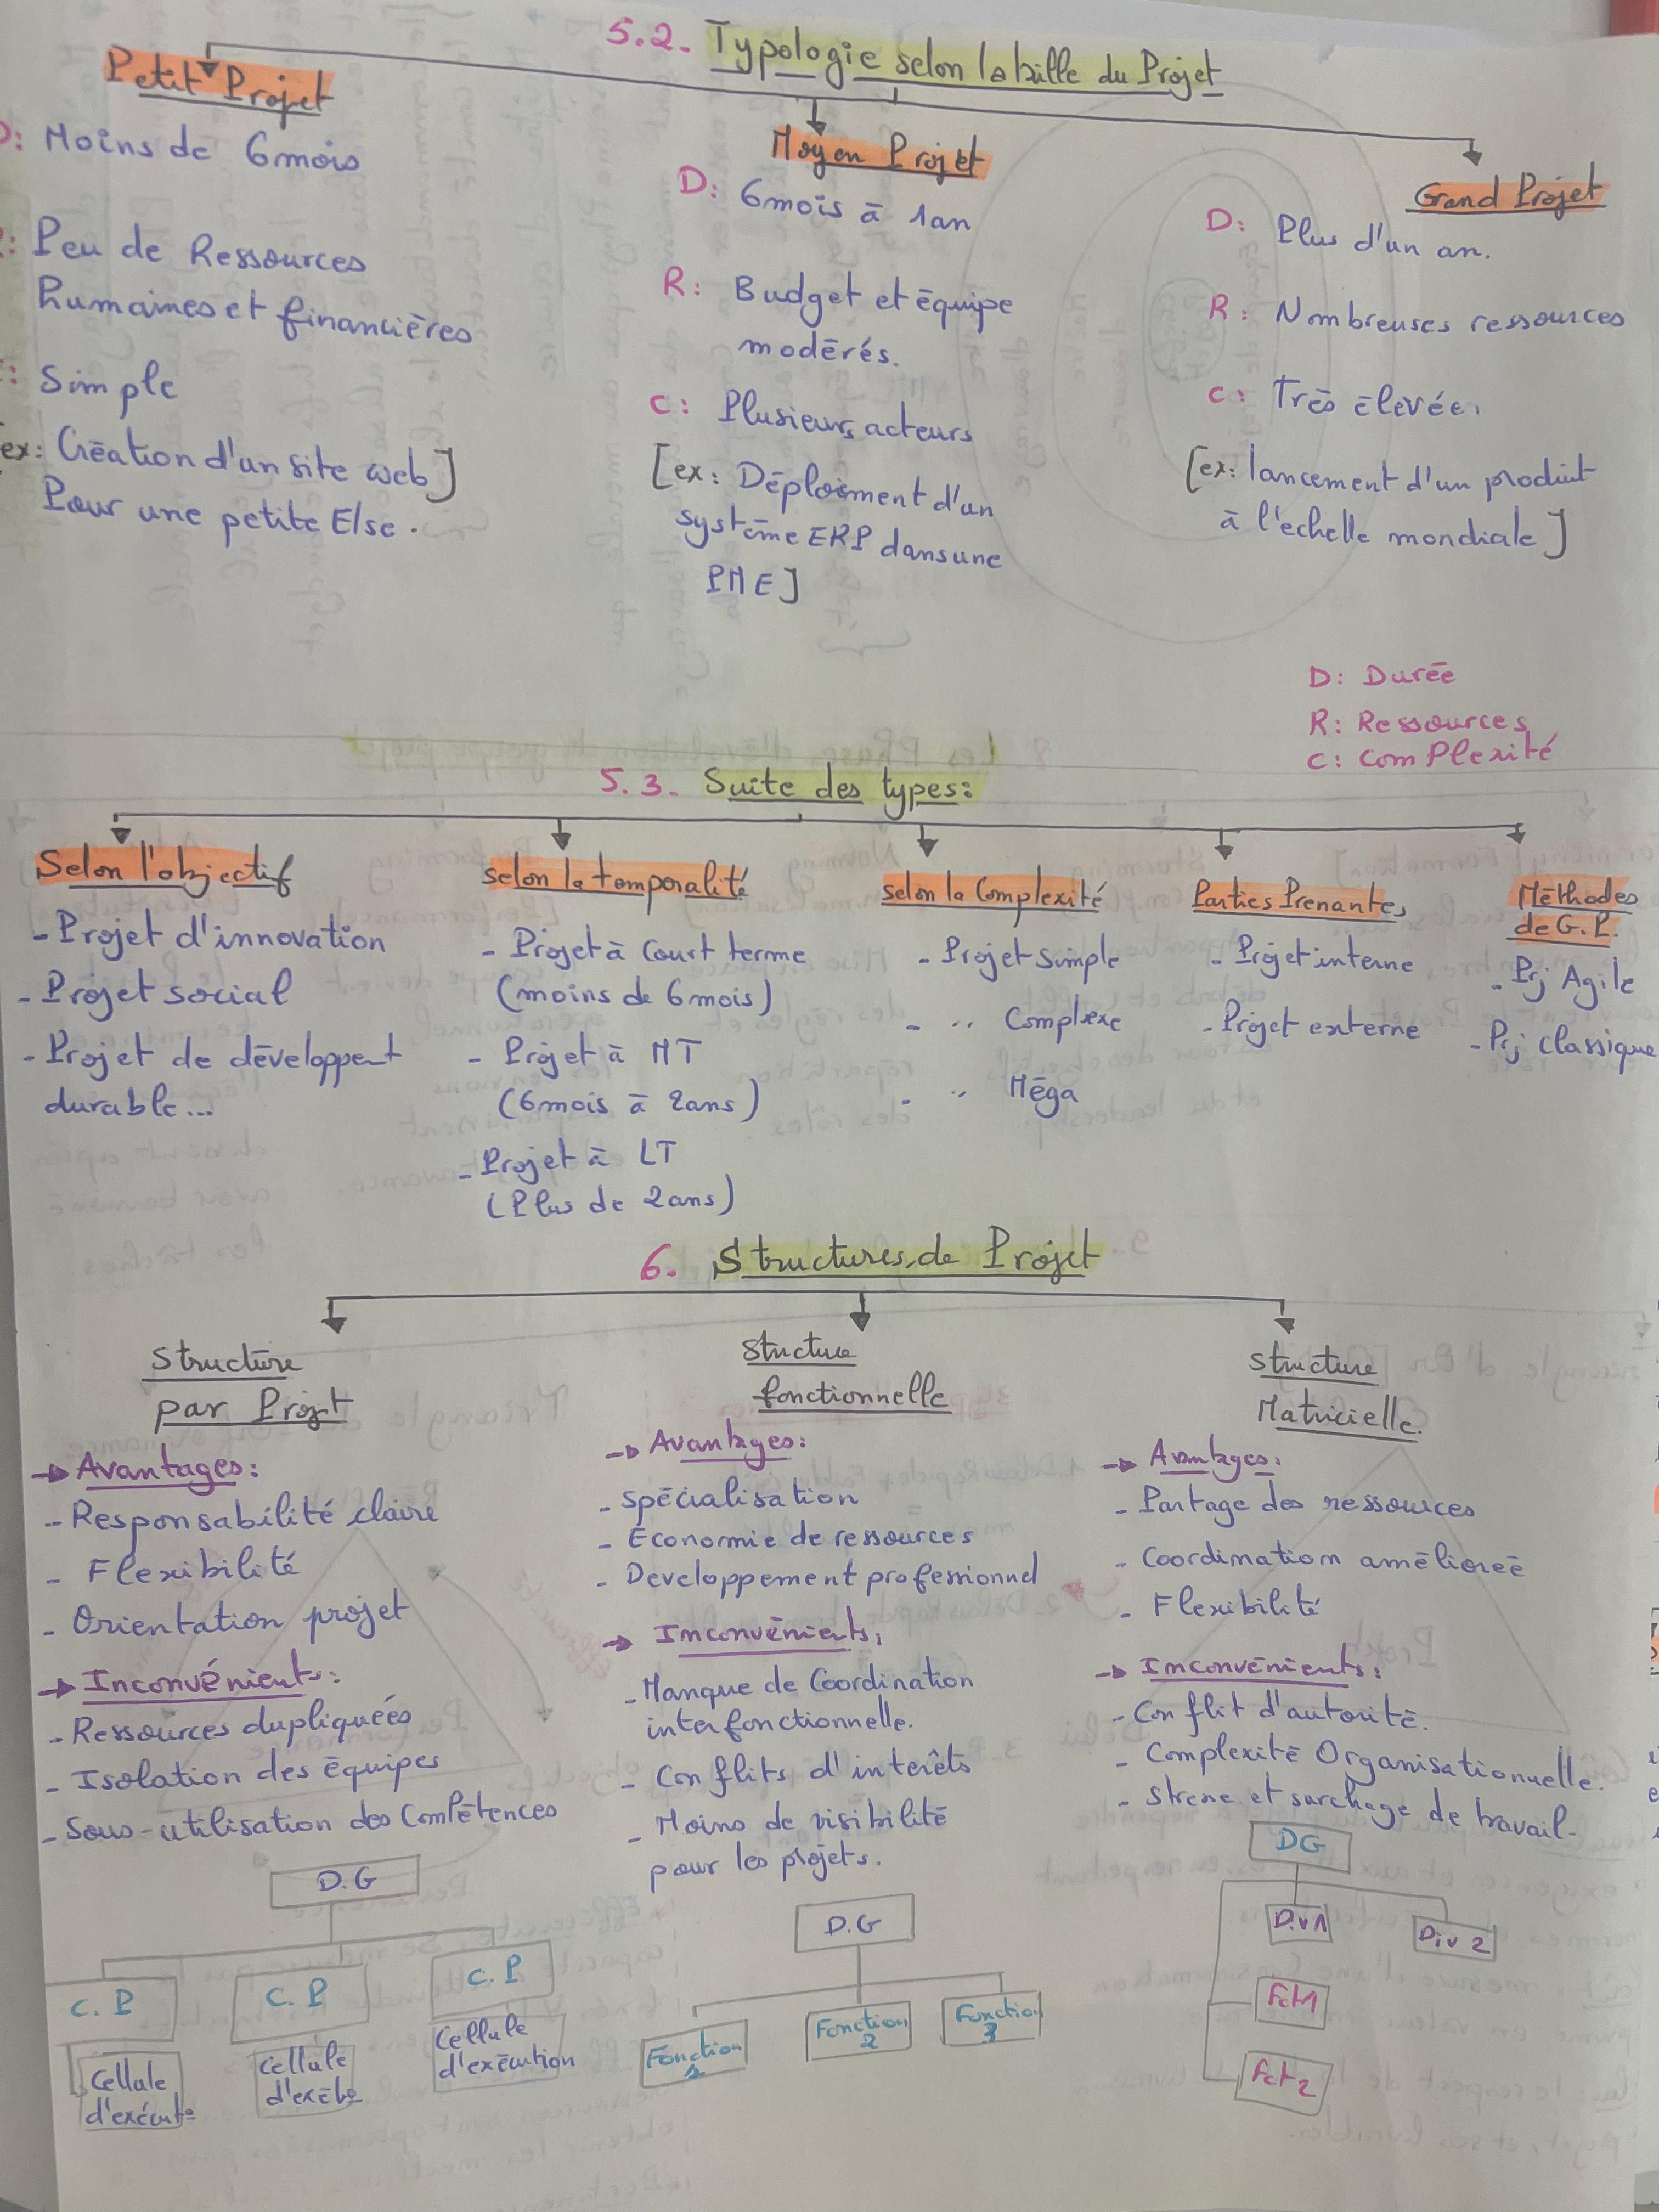 5.2. Typologie selon la taille du Projet
Petit Projet
D: Moins de 6mois
R: Peu de Ressources
humaines et financières
C: Simple
[ex: Création d'un site web]
Pour une petite E/se.
Moyen Projet
D: 6mois à 1an
R: Budget et équipe
modérés.
C: Plusieurs acteurs
[ex: Déploiement d'un
système ERP dans une
PME]
Grand Projet
D: Plus d'un an.
R: Nombreuses ressources
C: Très élevée.
[ex: lancement d'un produit
à l'echelle mondiale]
D: Durée
R: Ressources
C: ComPlexité
5.3. Suite des types:
Selon l'objectif
- Projet d'innovation
- Projet social
- Projet de développent
durable...
selon la temporalité
- Projet à Court terme
(moins de 6mois)
- Projet à MT
(6mois à 2ans)
- Projet à LT
(Plus de 2ans)
selon la Complexité
- Projet simple
- " Complexe
- " Méga
Parties Prenantes
- Projet interne
- Projet externe
Méthodes
de G.P.
- Prj Agile
- Prj classique
6. Structures de Projet
Structure
par Projet
→ Avantages:
- Responsabilité claire
- Flexibilité
- Orientation projet
→ Inconvénients:
- Ressources dupliquées
- Isolation des équipes
- Sous-utilisation des Compétences
D.G
C.P
C.P
C.P
Cellule
d'exécut°
Cellule
d'exéc°
Cellule
d'exécution
Stucture
fonctionnelle
→ Avantages:
- spécialisation
- Economie de ressources
- Developpement professionnel
→ Inconvénients:
- Manque de Coordination
interfonctionnelle.
- Conflits d'interêts
- Moins de visibilité
pour les projets.
D.G
Fonction
1
Fonction
2
Fonction
3
structure
Matricielle.
→ Avantages:
- Partage des ressources
- Coordination améliorée
- Flexibilité
→ Inconvénients:
- Conflit d'autorité.
- Complexité Organisationnelle.
- Stress et surchage de travail.
DG
Div1
Div 2
Fct1
Fct2